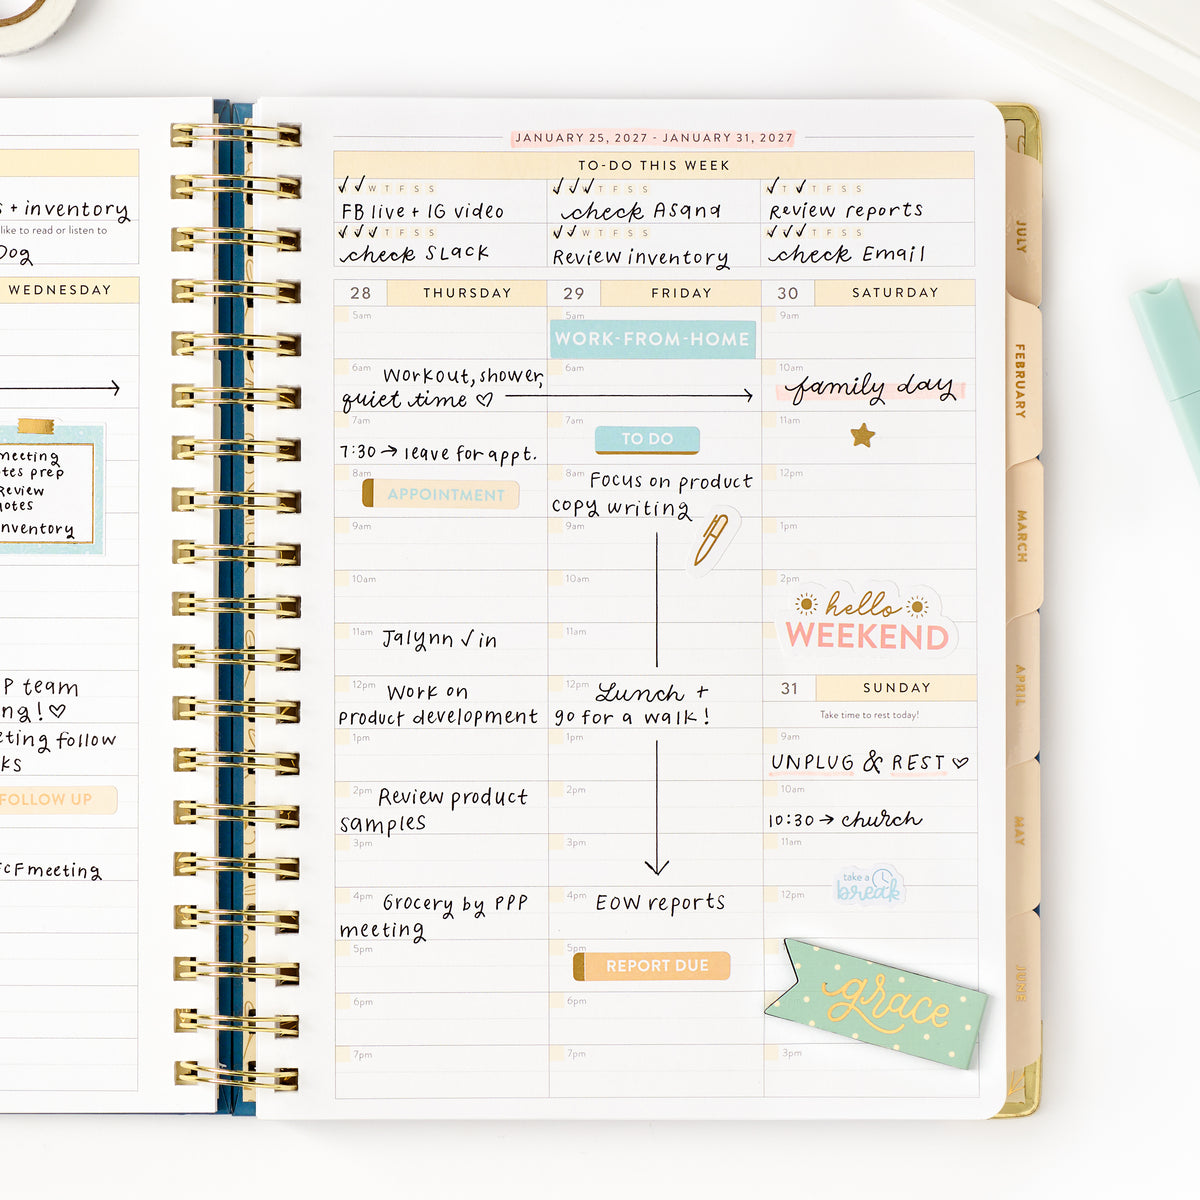 s + inventory
like to read or listen to
Dog
WEDNESDAY
meeting
otes prep
Review
notes
inventory
P team
ng! ♡
eting follow
ks
FOLLOW UP
FCF meeting
JANUARY 25, 2027 - JANUARY 31, 2027
TO-DO THIS WEEK
✓ ✓ W T F S S
FB live + IG video
✓ ✓ ✓ T F S S
check Asana
✓ T ✓ T F S S
Review reports
✓ ✓ ✓ T F S S
check Slack
✓ ✓ W T F S S
Review inventory
✓ ✓ ✓ T F S S
check Email
28 THURSDAY
5am
6am Workout, shower,
quiet time ♡
7am
7:30 → leave for appt.
8am
APPOINTMENT
9am
10am
11am Jalynn ✓ in
12pm Work on
product development
1pm
2pm Review product
samples
3pm
4pm Grocery by PPP
meeting
5pm
6pm
7pm
29 FRIDAY
5am
WORK-FROM-HOME
6am
7am
TO DO
8am Focus on product
copy writing
9am
10am
11am
12pm Lunch +
go for a walk!
1pm
2pm
3pm
4pm EOW reports
5pm
REPORT DUE
6pm
7pm
30 SATURDAY
9am
10am
family day
11am
12pm
1pm
2pm
hello
WEEKEND
31 SUNDAY
Take time to rest today!
9am
UNPLUG & REST ♡
10am
10:30 → church
11am
take a
break
12pm
grace
3pm
JULY
FEBRUARY
MARCH
APRIL
MAY
JUNE